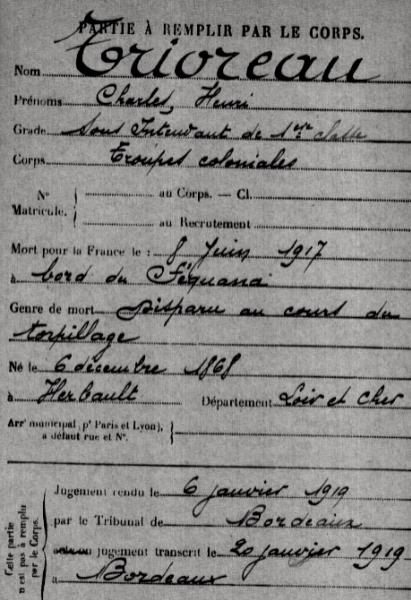 PARTIE À REMPLIR PAR LE CORPS.
Nom Trioreau
Prénoms Charles, Henri
Grade Sous Intendant de 1ère classe
Corps Troupes coloniales
N° Matricule. { au Corps. — Cl.
au Recrutement
Mort pour la France le : 8 Juin 1917
à bord du Séquana
Genre de mort Disparu au cours du
torpillage
Né le 6 décembre 1868
à Herbault Département Loir et Cher
Arrt municipal (pr Paris et Lyon),
à défaut rue et N°.
Cette partie n'est pas à remplir par le Corps.
Jugement rendu le 6 janvier 1919
par le Tribunal de Bordeaux
jugement transcrit le 20 janvier 1919
à Bordeaux